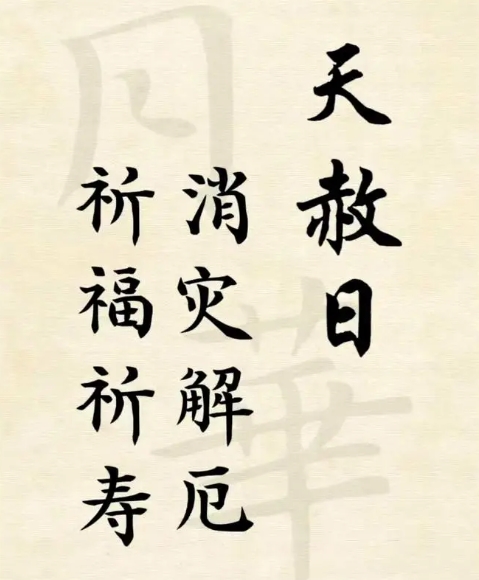 天赦日
消灾解厄
祈福祈寿
月
華